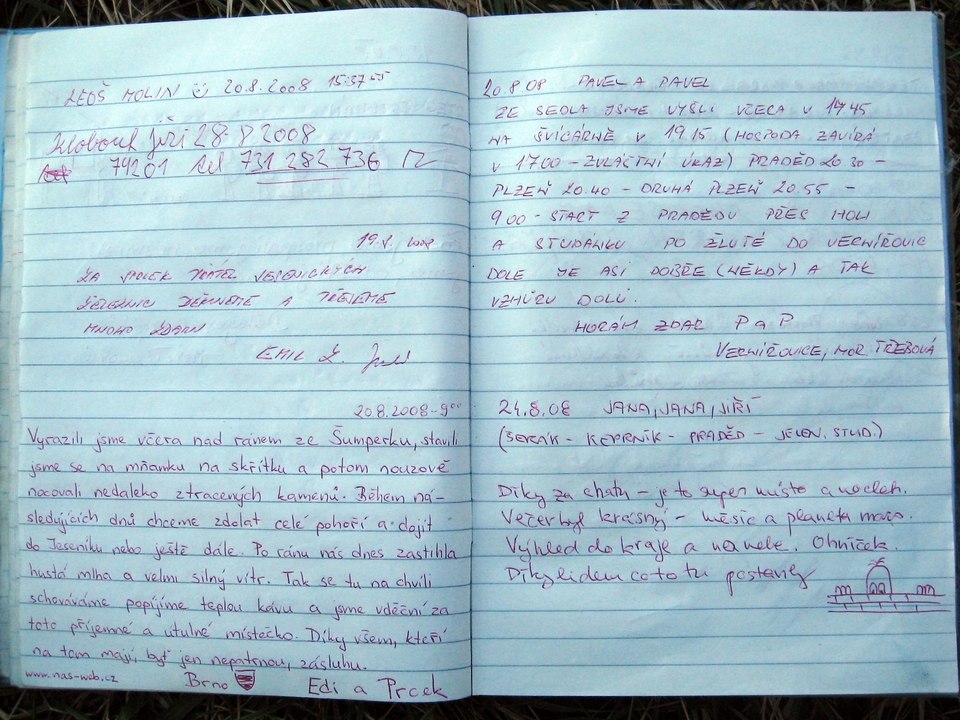 LEOŠ HOLIN 20.8.2008 15:37:55
Klobouk Jiří 28.8 2008
79201 tel 731 282 736
19.8. 2008
ZA SPOLEK PŘÁTEL VERNÍŘOVICKÝCH
A
MNOHO ZDARU
EMIL
20.8.2008-9⁰⁰
Vyrazili jsme včera nad ránem ze Šumperku, stavili
jsme se na mňamku na skřítku a potom nouzově
nocovali nedaleko ztracených kamenů. Během ná-
sledujících dnů chceme zdolat celé pohoří a dojít
do Jeseníku nebo ještě dále. Po ránu nás dnes zastihla
hustá mlha a velmi silný vítr. Tak se tu na chvíli
schováváme popíjíme teplou kávu a jsme vděční za
toto příjemné a útulné místečko. Díky všem, kteří
na tom mají, byť jen nepatrnou, zásluhu.
www.nas-web.cz Brno Edi a Prcek
20.8 08 PAVEL A PAVEL
ZE SEDLA JSME VYŠLI VČERA V 17.45
NA ŠVÝCÁRNĚ V 19.15 (HOSPODA ZAVÍRÁ
V 17.00 - ZVLÁŠTNÍ ÚKAZ) PRADĚD 20.30 -
PLZEŇ 20.40 - DRUHÁ PLZEŇ 20.55 -
9.00 - START Z PRADĚDU PŘES HOLI
A STUDÁNKU PO ŽLUTÉ DO VERNÍŘOVIC
DOLE JE ASI DOBŘE (NĚKDY) A TAK
VZHŮRU DOLŮ.
HORÁM ZDAR P a P
VERNÍŘOVICE, MOR TŘEBOVÁ
24.8.08 JANA, JANA, JIŘÍ
(ŠERÁK - KEPRNÍK - PRADĚD - JELEN. STUD.)
Díky za chatu - je to super místo a nocleh.
Večer byl krásný - měsíc a planeta mars.
Výhled do kraje a na nebe. Ohníček.
Díky lidem co to tu postavily